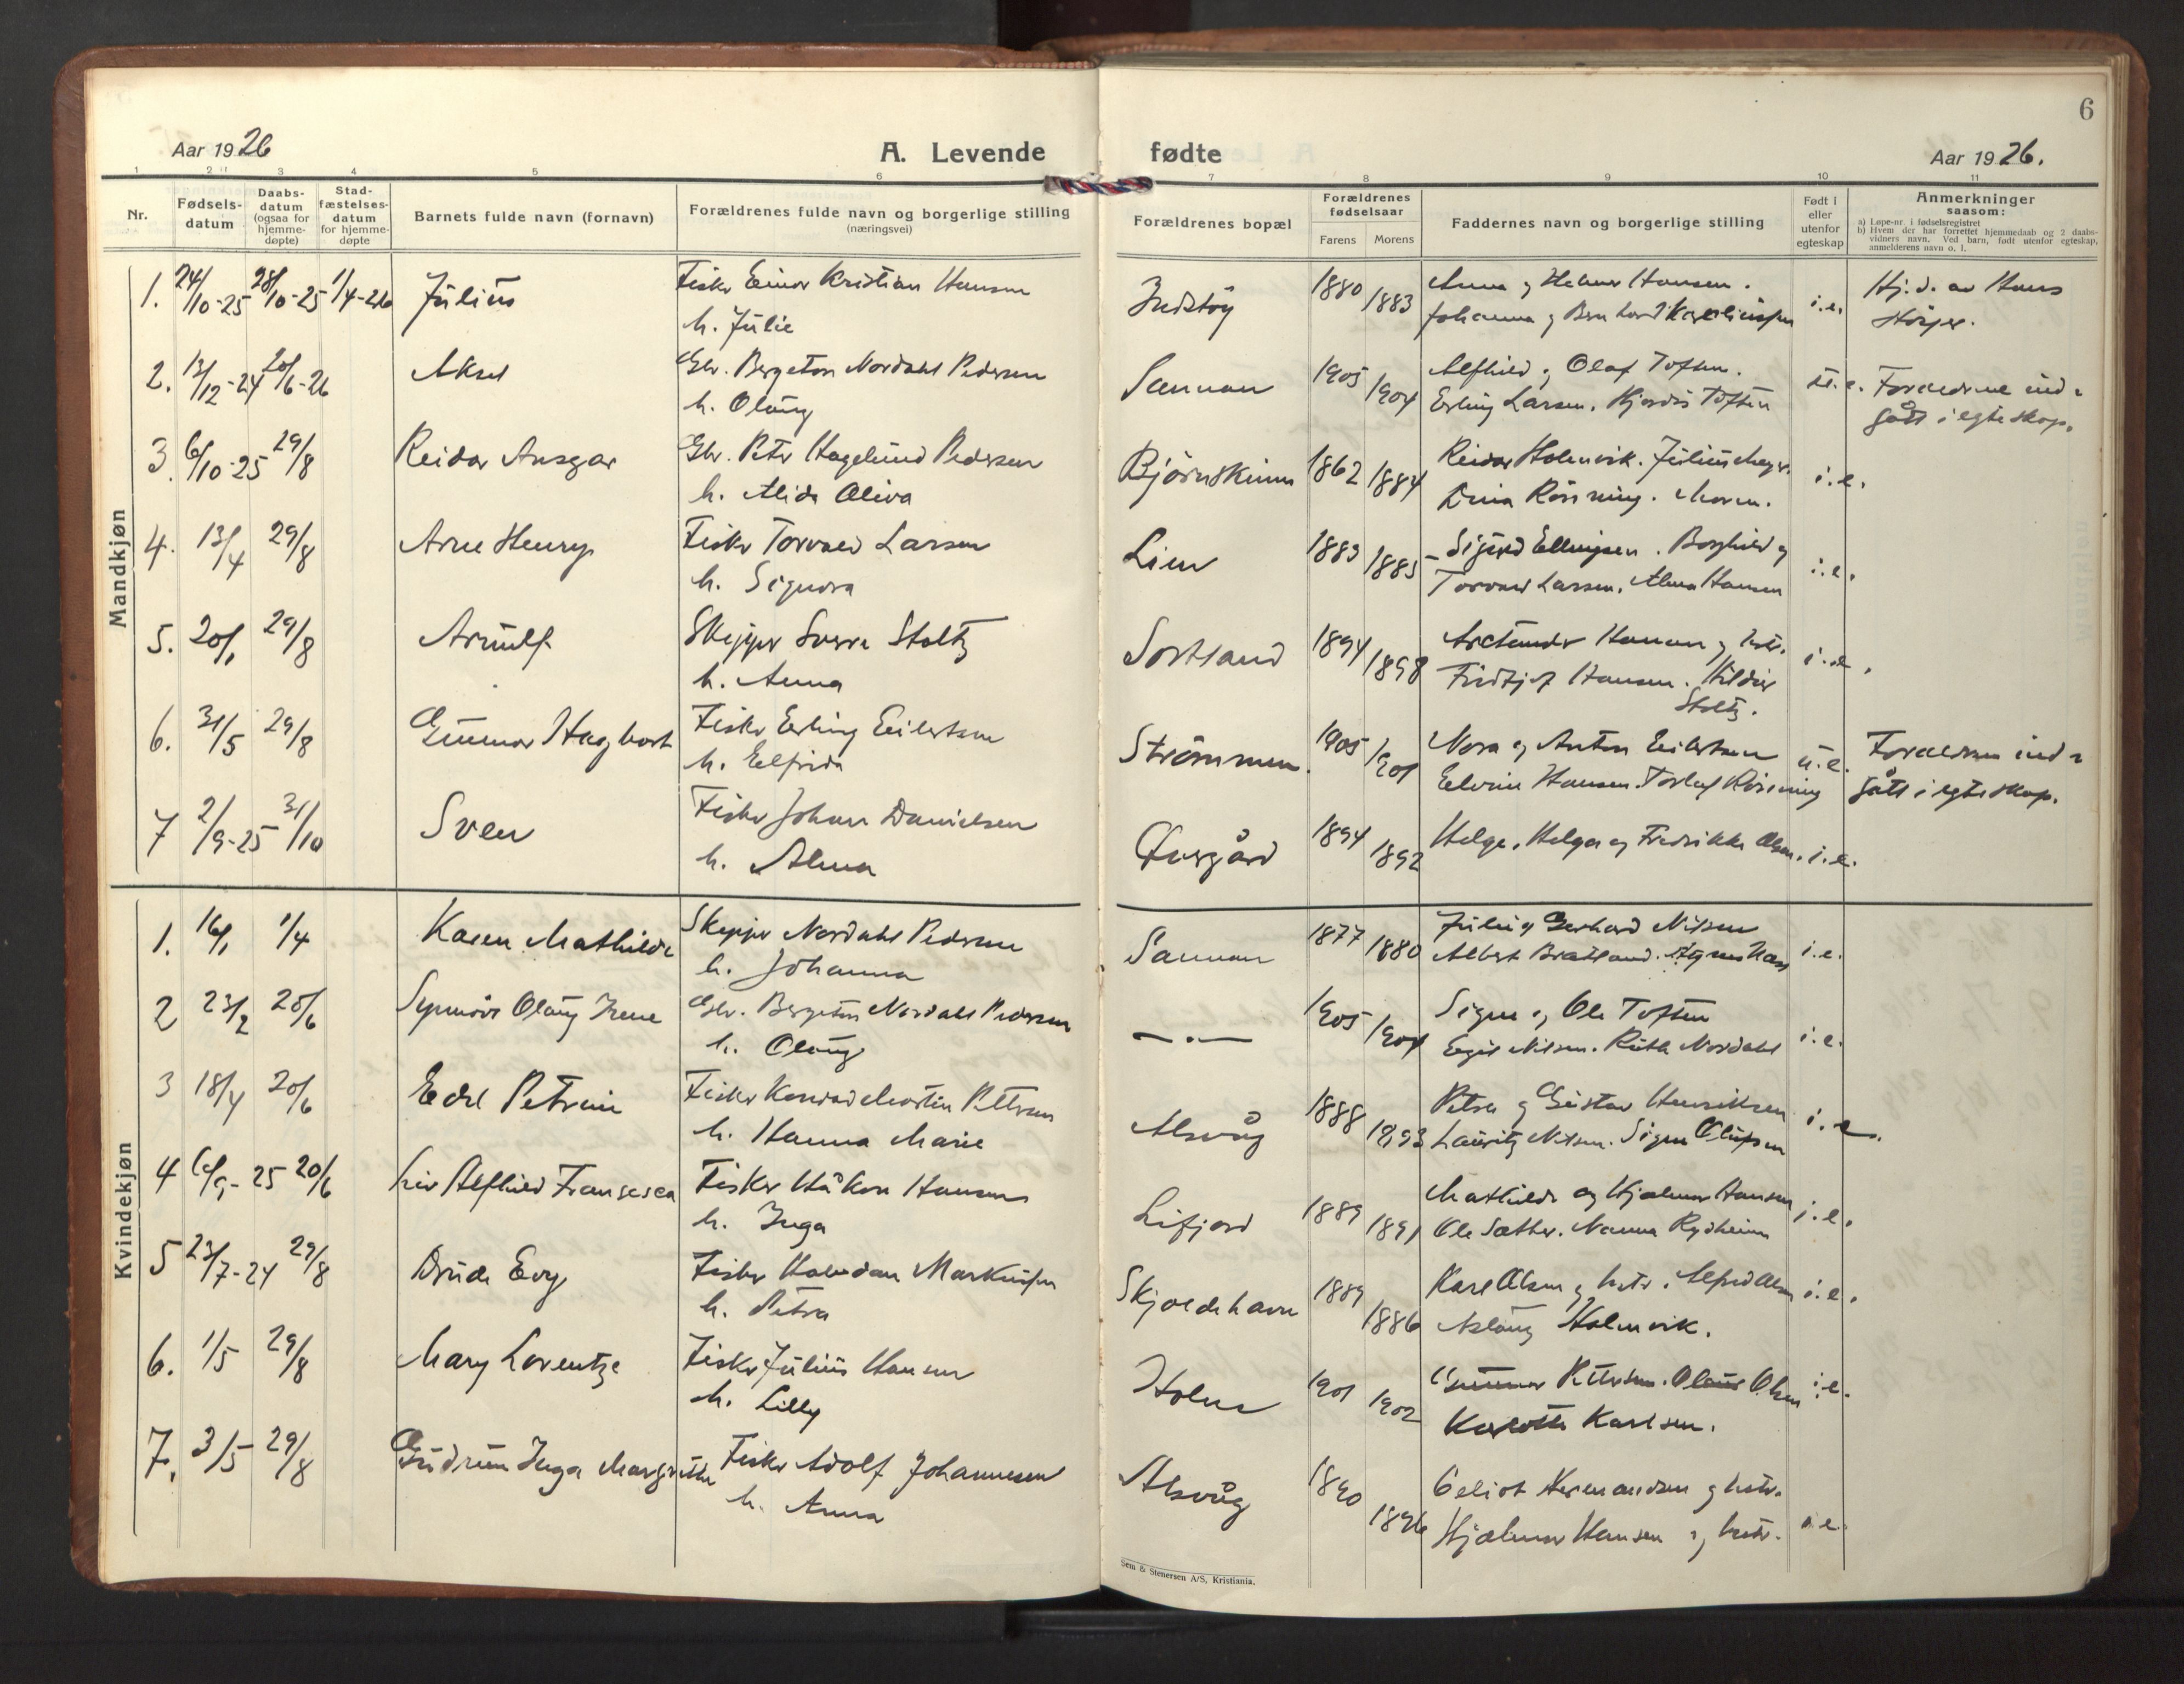 6
Aar 1926
A. Levende
fødte
Aar 1926.
1 2 3 4 5 6 7 8 9 10 11
Nr.
Fødsels-
datum
Daabs-
datum
(ogsaa for
hjemme-
døpte)
Stad-
fæstelses-
datum
for hjemme-
døpte
Barnets fulde navn (fornavn)
Forældrenes fulde navn og borgerlige stilling
(næringsvei)
Forældrenes bopæl
Forældrenes
fødselsaar
Farens Morens
Faddernes navn og borgerlige stilling
Født i
eller
utenfor
egteskap
Anmerkninger
saasom:
a) Løpe-nr. i fødselsregistret
b) Hvem der har forrettet hjemmedaab og 2 daabs-
vidners navn. Ved barn, født utenfor egteskap,
anmelderens navn o. l.
Mandkjøn
1. 24/10-25 28/10-25 1/4-26 Július Fisker Einar Kristian Hansen 1880 Anna og Helmer Hansen. Hj.d. av Hans
h. Júlie 1883 Johanna og Bernhard i.e.
2. 13/12-24 20/6-26 Aksel Gbr. Bergeton Nordahl Pedersen 1905 Alfhild og Olaf Toften. ú.e. Forældrene ind-
h. Olaúg Sannan 1904 Erling Larsen. Hjordis Toften gått i egteskap.
3. 6/10-25 29/8 Reidar Ansgar Gbr. Peter Hagelúnd Pedersen Bjørnskinn 1862 Reidar Holmvik.
h. Alida Oliva 1884 i.e.
4. 13/4 29/8 Arne Henry Fisker Torvald Larsen Lien 1883 Sigúrd Ellingsen. Borghild og
h. Signora 1885 Torvald Larsen. Alma Hansen i.e.
5. 20/1 29/8 Arnúlf Skipper Sverre Stoltz Sortland 1894 Hansen og hstr.
h. Anna 1898 Fridtjof Hansen. i.e.
Stoltz.
6. 31/5 29/8 Gúnnar Hagbart Fisker Erling Eilertsen Strømmen 1905 Nora og Anton Eilertsen ú.e. Forældrene ind-
h. Elfrida 1901 Hansen. gått i egteskap.
7 2/9-25 31/10 Sven Fisker Johan Danielsen 1894 Helge, Helga og Fredrikke Olsen. i.e.
h. Alma 1892
Kvindekjøn
1. 16/1 1/4 Karen Mathilde Skipper Nordahl Pedersen Sannan 1877 Gerhard Nilsen
h. Johanna 1880 Albert i.e.
2 23/2 20/6 Synnöve Olaúg Irene Gbr. Bergeton Nordahl Pedersen —.— 1905 Signe og Ole Toften
h. Olaúg 1904 Egil Nilsen. Rúth Nordahl i.e.
3 18/4 20/6 Edel Petrine Fisker Konrad Martin Pettersen Alsvåg 1888 Petra og Gústav Henriksen i.e.
h. Hanna Marie 1893 Laúritz Nilsen. Signe
4 6/9-25 20/6 Liv Alfhild Fransesca Fisker Håkon Hansen Lifjord 1889 Mathilde og Hjalmar Hansen i.e.
h. Inga 1891 Ole Sæther. Nanna Rydheim
5 23/7-24 29/8 Drúde Evy Fisker Halvdan Markússen Skjoldehavn 1889 Karl Olsen og hstr. Alfred Olsen i.e.
h. Petra 1886 Aslaúg Holmvik.
6. 1/5 29/8 Mary Lorentze Fisker Július Hansen 1901 Gúnnar Pettersen. Olaús Olsen i.e.
h. Lilly 1902 Karlsen.
7. 3/5 29/8 Gúdrún Inga Margrethe Fisker Adolf Johannesen Alsvåg 1890 Hermandsen og hstr.
h. Anna 1896 Hjalmar Hansen og hstr. i.e.
Sem & Stenersen A/S, Kristiania.